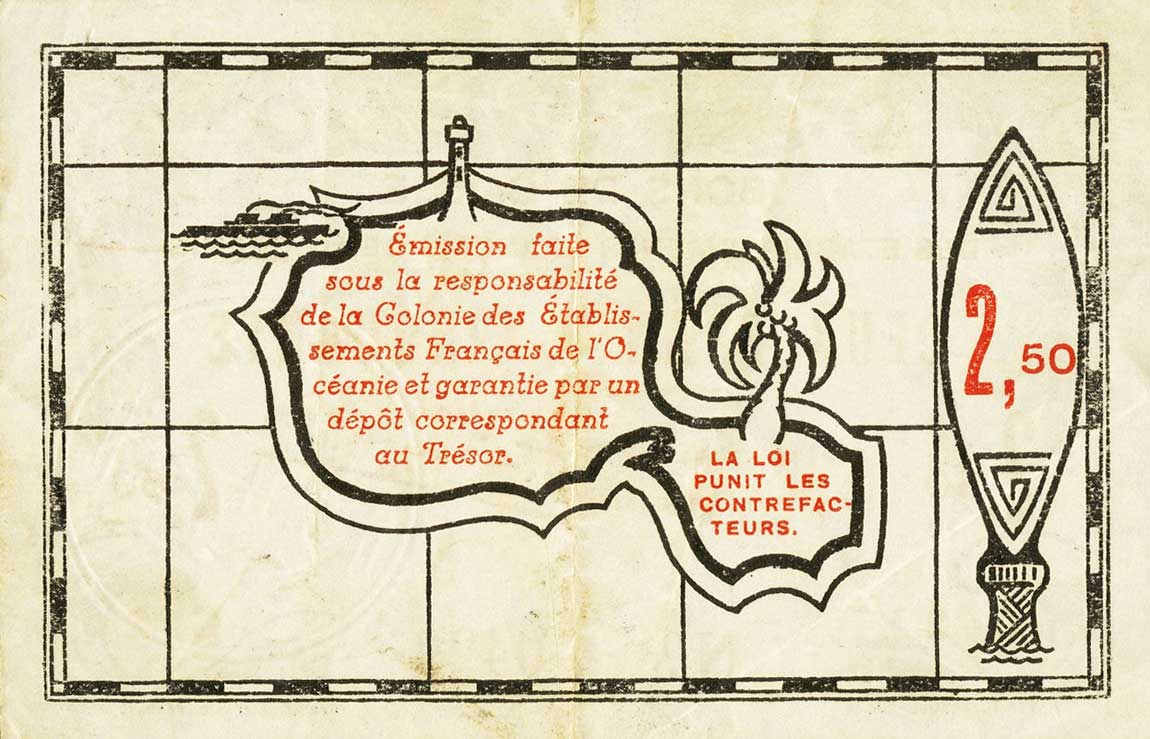 Émission faite
sous la responsabilité
de la Colonie des Établis-
sements Français de l'O-
céanie et garantie par un
dépôt correspondant
au Trésor.
LA LOI
PUNIT LES
CONTREFAC-
TEURS.
2,50